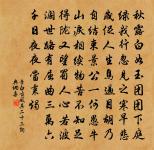 秋露白如玉團團下庭
綠我行忽見之寒早悲
歲促人生鳥過目胡乃
自結束景公一何愚牛
山淚相續物苦不知足
得隴又望蜀人心若波
瀾世路有屈曲三萬六
千日夜夜當秉燭
李白古風其二十三